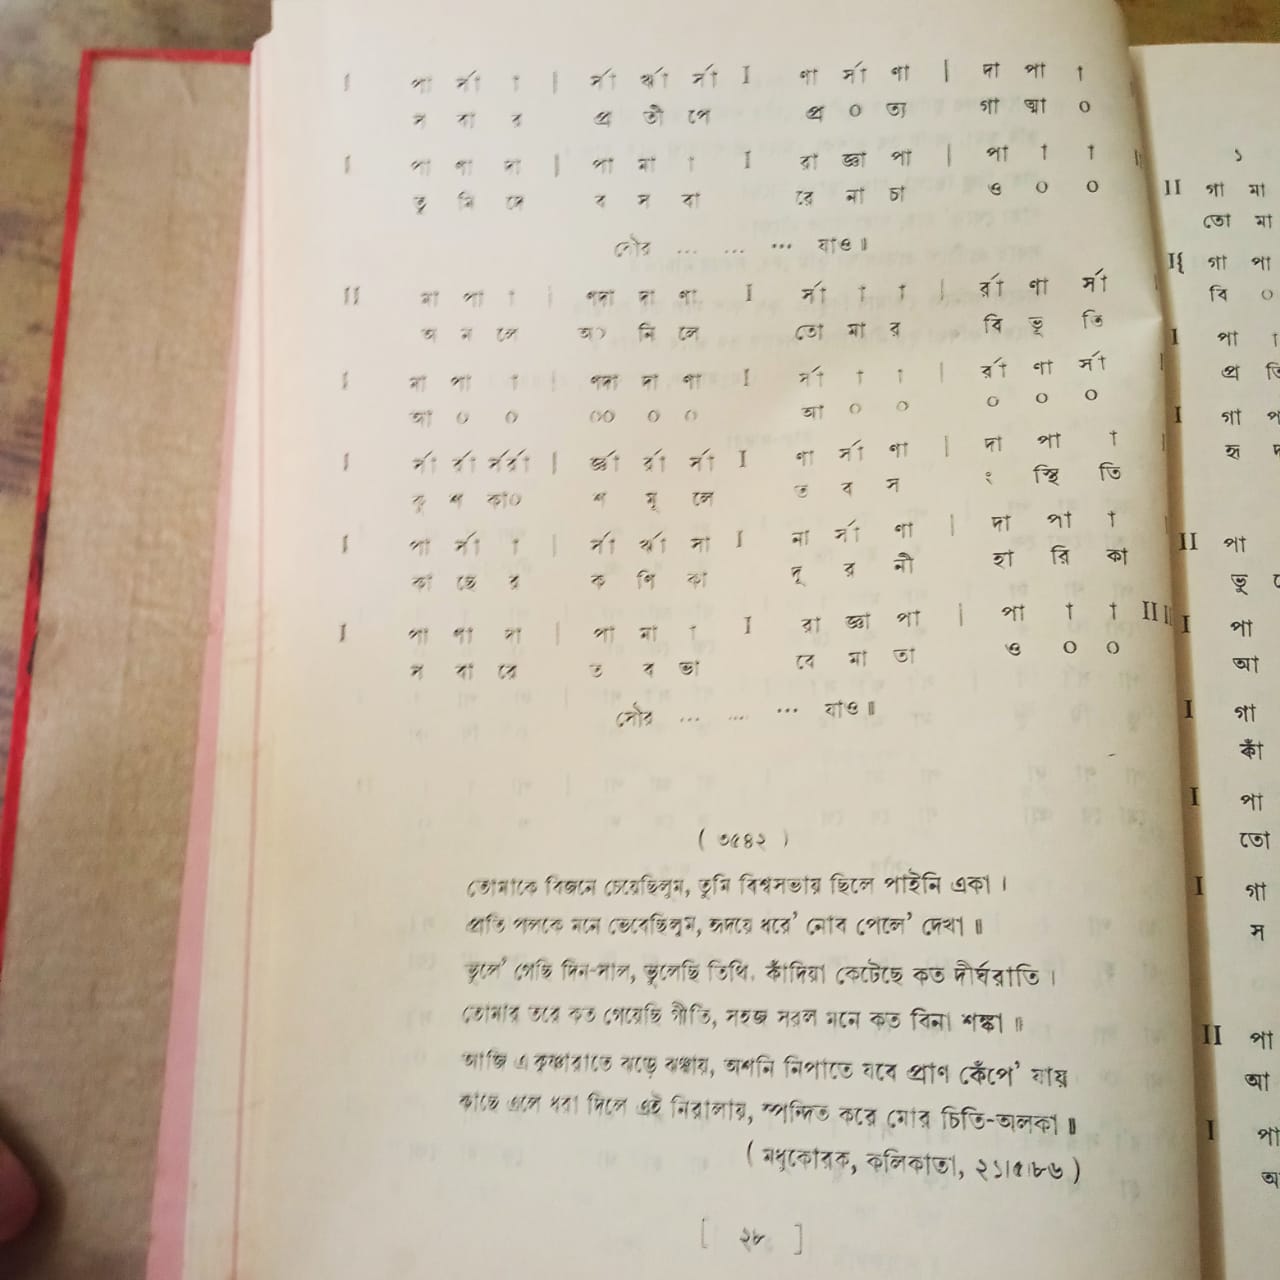 I পা র্সা া | র্সা র্ঋা র্সা I ণা র্সা ণা | দা পা া
স বা র প্র তী পে প্র ০ ত্য গা ত্মা ০
I পা ণা দা | পা মা া I রা জ্ঞা পা | পা া া
তু মি যে ব স বা রে না চা ও ০ ০
মোর ... ... ... যাও॥
II মা পা া | ণদা দা ণা I র্সা া া | র্রা ণা র্সা
অ ন লে অ০ নি লে তো মা র বি ভূ তি
I মা পা া | ণদা দা ণা I র্সা া া | র্রা ণা র্সা
আ ০ ০ ০০ ০ ০ আ ০ ০ ০ ০ ০
I র্সা র্রা র্সর্রা | র্জ্ঞা র্রা র্সা I ণা র্সা ণা | দা পা া
কু শ কা০ শ মূ লে ত ব স ং স্থি তি
I পা র্সা া | র্সা র্ঋা র্সা I ণা র্সা ণা | দা পা া
কা ছে র ক ণি কা দূ র নী হা রি কা
I পা ণা দা | পা মা া I রা জ্ঞা পা | পা া া II II
স বা রে ত ব ভা বে মা তা ও ০ ০
মোর ... ... ... যাও॥
( ৩৫৪২ )
তোমাকে বিজনে চেয়েছিলুম, তুমি বিশ্বসভায় ছিলে পাইনি একা ।
প্রতি পলকে মনে ভেবেছিলুম, হৃদয়ে ধরে’ মোর পেলে’ দেখা ॥
ভুলে’ গেছি দিন-সাল, ভুলেছি তিথি, কাঁদিয়া কেটেছে কত দীর্ঘরাতি ।
তোমার তরে কত গেয়েছি গীতি, সহজ সরল মনে কত বিনা শঙ্কা ॥
আজি এ কৃষ্ণারাতে ঝড়ে ঝঞ্ঝায়, অশনি নিপাতে যবে প্রাণ কেঁপে’ যায়
কাছে এসে ধরা দিলে এই নিরালায়, স্পন্দিত করে মোর চিতি-অলকা ॥
( মধুকোরক, কলিকাতা, ২১।৫।৮৬ )
[ ২৮ ]
১
II গা মা
তো মা
I{ গা পা
বি ০
I পা া
প্র তি
I গা
হৃ
II পা
ভু
I পা
আ
I গা
কাঁ
I পা
তো
I গা
স
II পা
আ
I পা